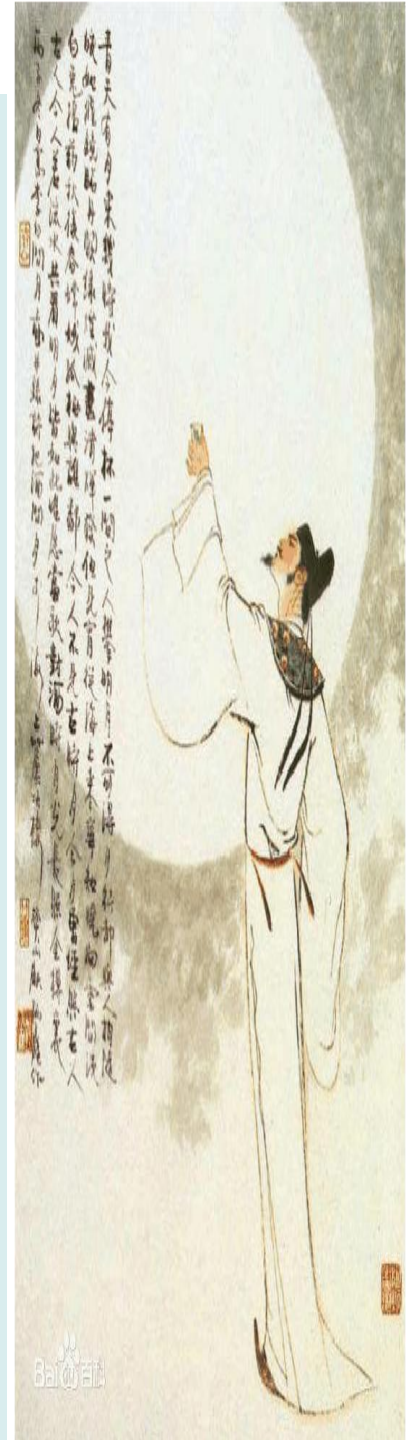 青天有月來幾時我今停杯一問之人攀明月不可得月行却與人相隨
皎如飛鏡臨丹闕綠煙滅盡清輝發但見宵從海上來寧知曉向雲間沒
白兔搗藥秋復春嫦娥孤栖與誰鄰今人不見古時月今月曾經照古人
古人今人若流水共看明月皆如此唯愿當歌對酒時月光長照金樽裏
李白問月
Bai百科